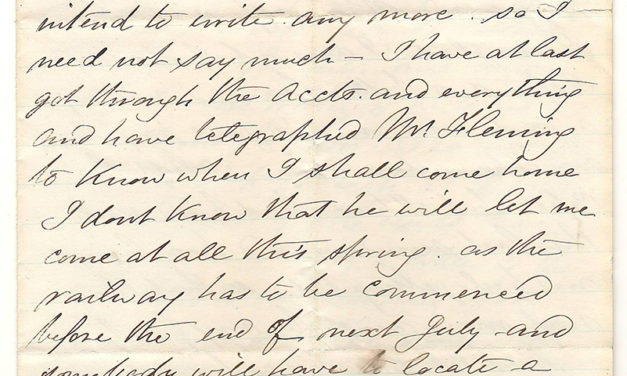 intend to write any more. so I
need not say much – I have at last
got through the Accts. and everything
and have telegraphed Mr. Fleming
to know when I shall come home
I dont know that he will let me
come at all this spring. as the
railway has to be commenced
before the end of next July and
somebody will have to locate a